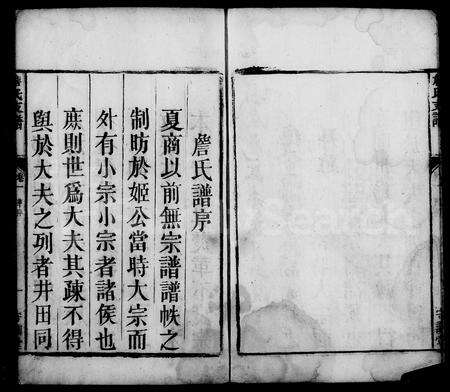 詹氏譜序
夏商以前無宗譜譜帙之
制昉於姬公當時大宗而
外有小宗小宗者諸侯也
庶則世為大夫其疎不得
與於大夫之列者井田同
氏支譜
卷一
氏支譜